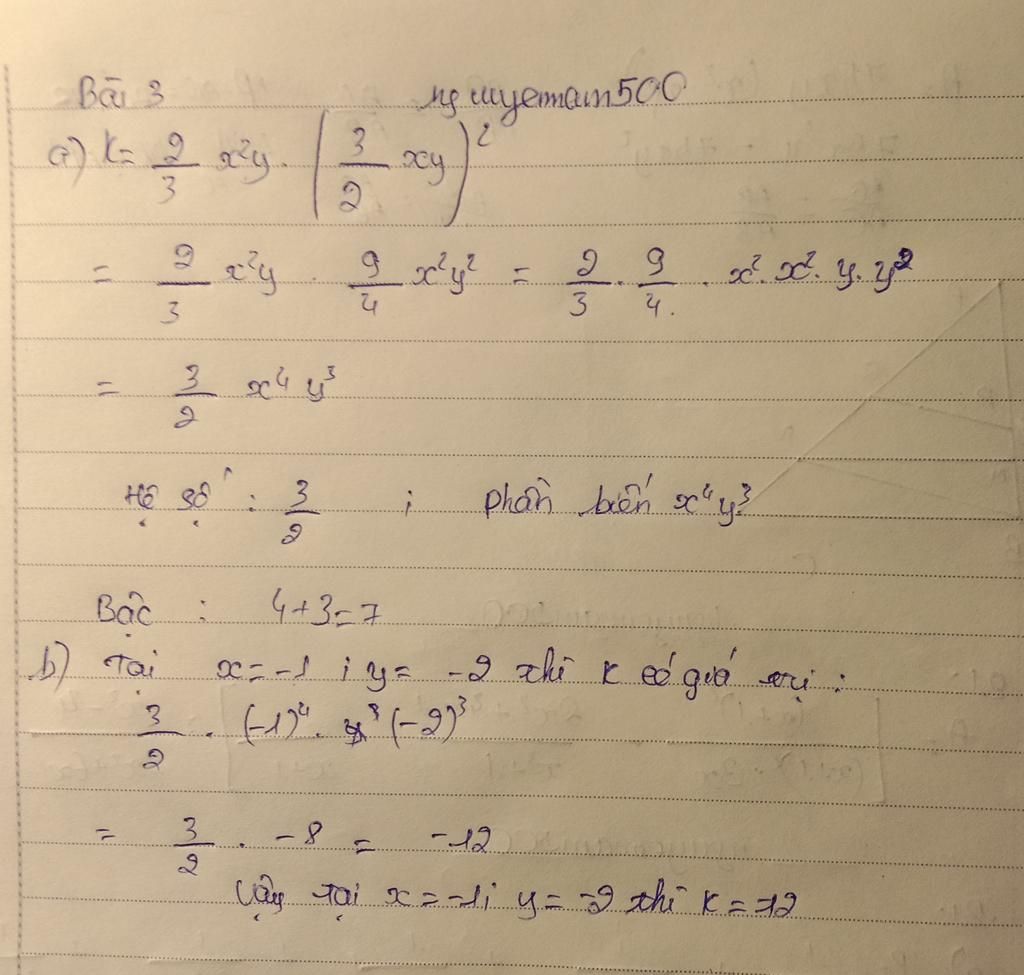 Bài 3 nguyemam500
a) K = 2/3 x²y . (3/2 xy)²
= 2/3 x²y . 9/4 x²y² = 2/3 . 9/4 . x² . x² . y . y²
= 3/2 x⁴ y³
Hệ số : 3/2 ; phần biến x⁴y³
Bậc : 4+3=7
b) Tại x = -1 ; y = -2 thì K có giá trị :
3/2 . (-1)⁴ . (-2)³
= 3/2 . -8 = -12
Vậy tại x = -1; y = -2 thì K = -12